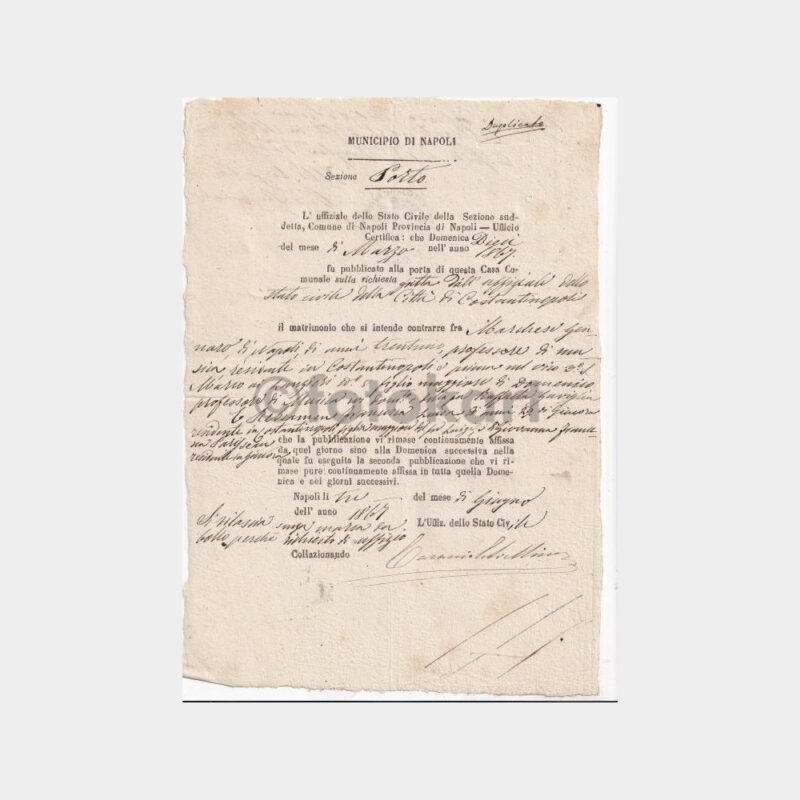 Duplicato
MUNICIPIO DI NAPOLI
Sezione Porto
L' uffiziale dello Stato Civile della Sezione sud-
detta, Comune di Napoli Provincia di Napoli — Ufficio
Certifica: che Domenica Dieci
del mese di Marzo nell' anno 1867
fu pubblicato alla porta di questa Casa Co-
munale sulla richiesta fatta dall' uffiziale dello
stato civile della Città di Costantinopoli
il matrimonio che si intende contrarre fra Marchese Gen-
naro, di Napoli, di anni trentuno, professore di mu-
sica residente in Costantinopoli e prima nel vico
figlio maggiore di Domenico,
professore di Musica
© fotolot
E di anni 29 di Genova
residente in Costantinopoli figlia maggiore del fu Luigi, e Giovanna
residente in Genova
che la pubblicazione vi rimase continuamente affissa
da quel giorno sino alla Domenica successiva nella
quale fu eseguita la seconda pubblicazione che vi ri-
mase pure continuamente affissa in tutta quella Dome-
nica e nei giorni successivi.
Napoli li tre del mese di Giugno
dell' anno 1867
L'Uffiz. dello Stato Civile
Si rilascia senza marca da
bollo perchè richiesto di uffizio
Collazionando